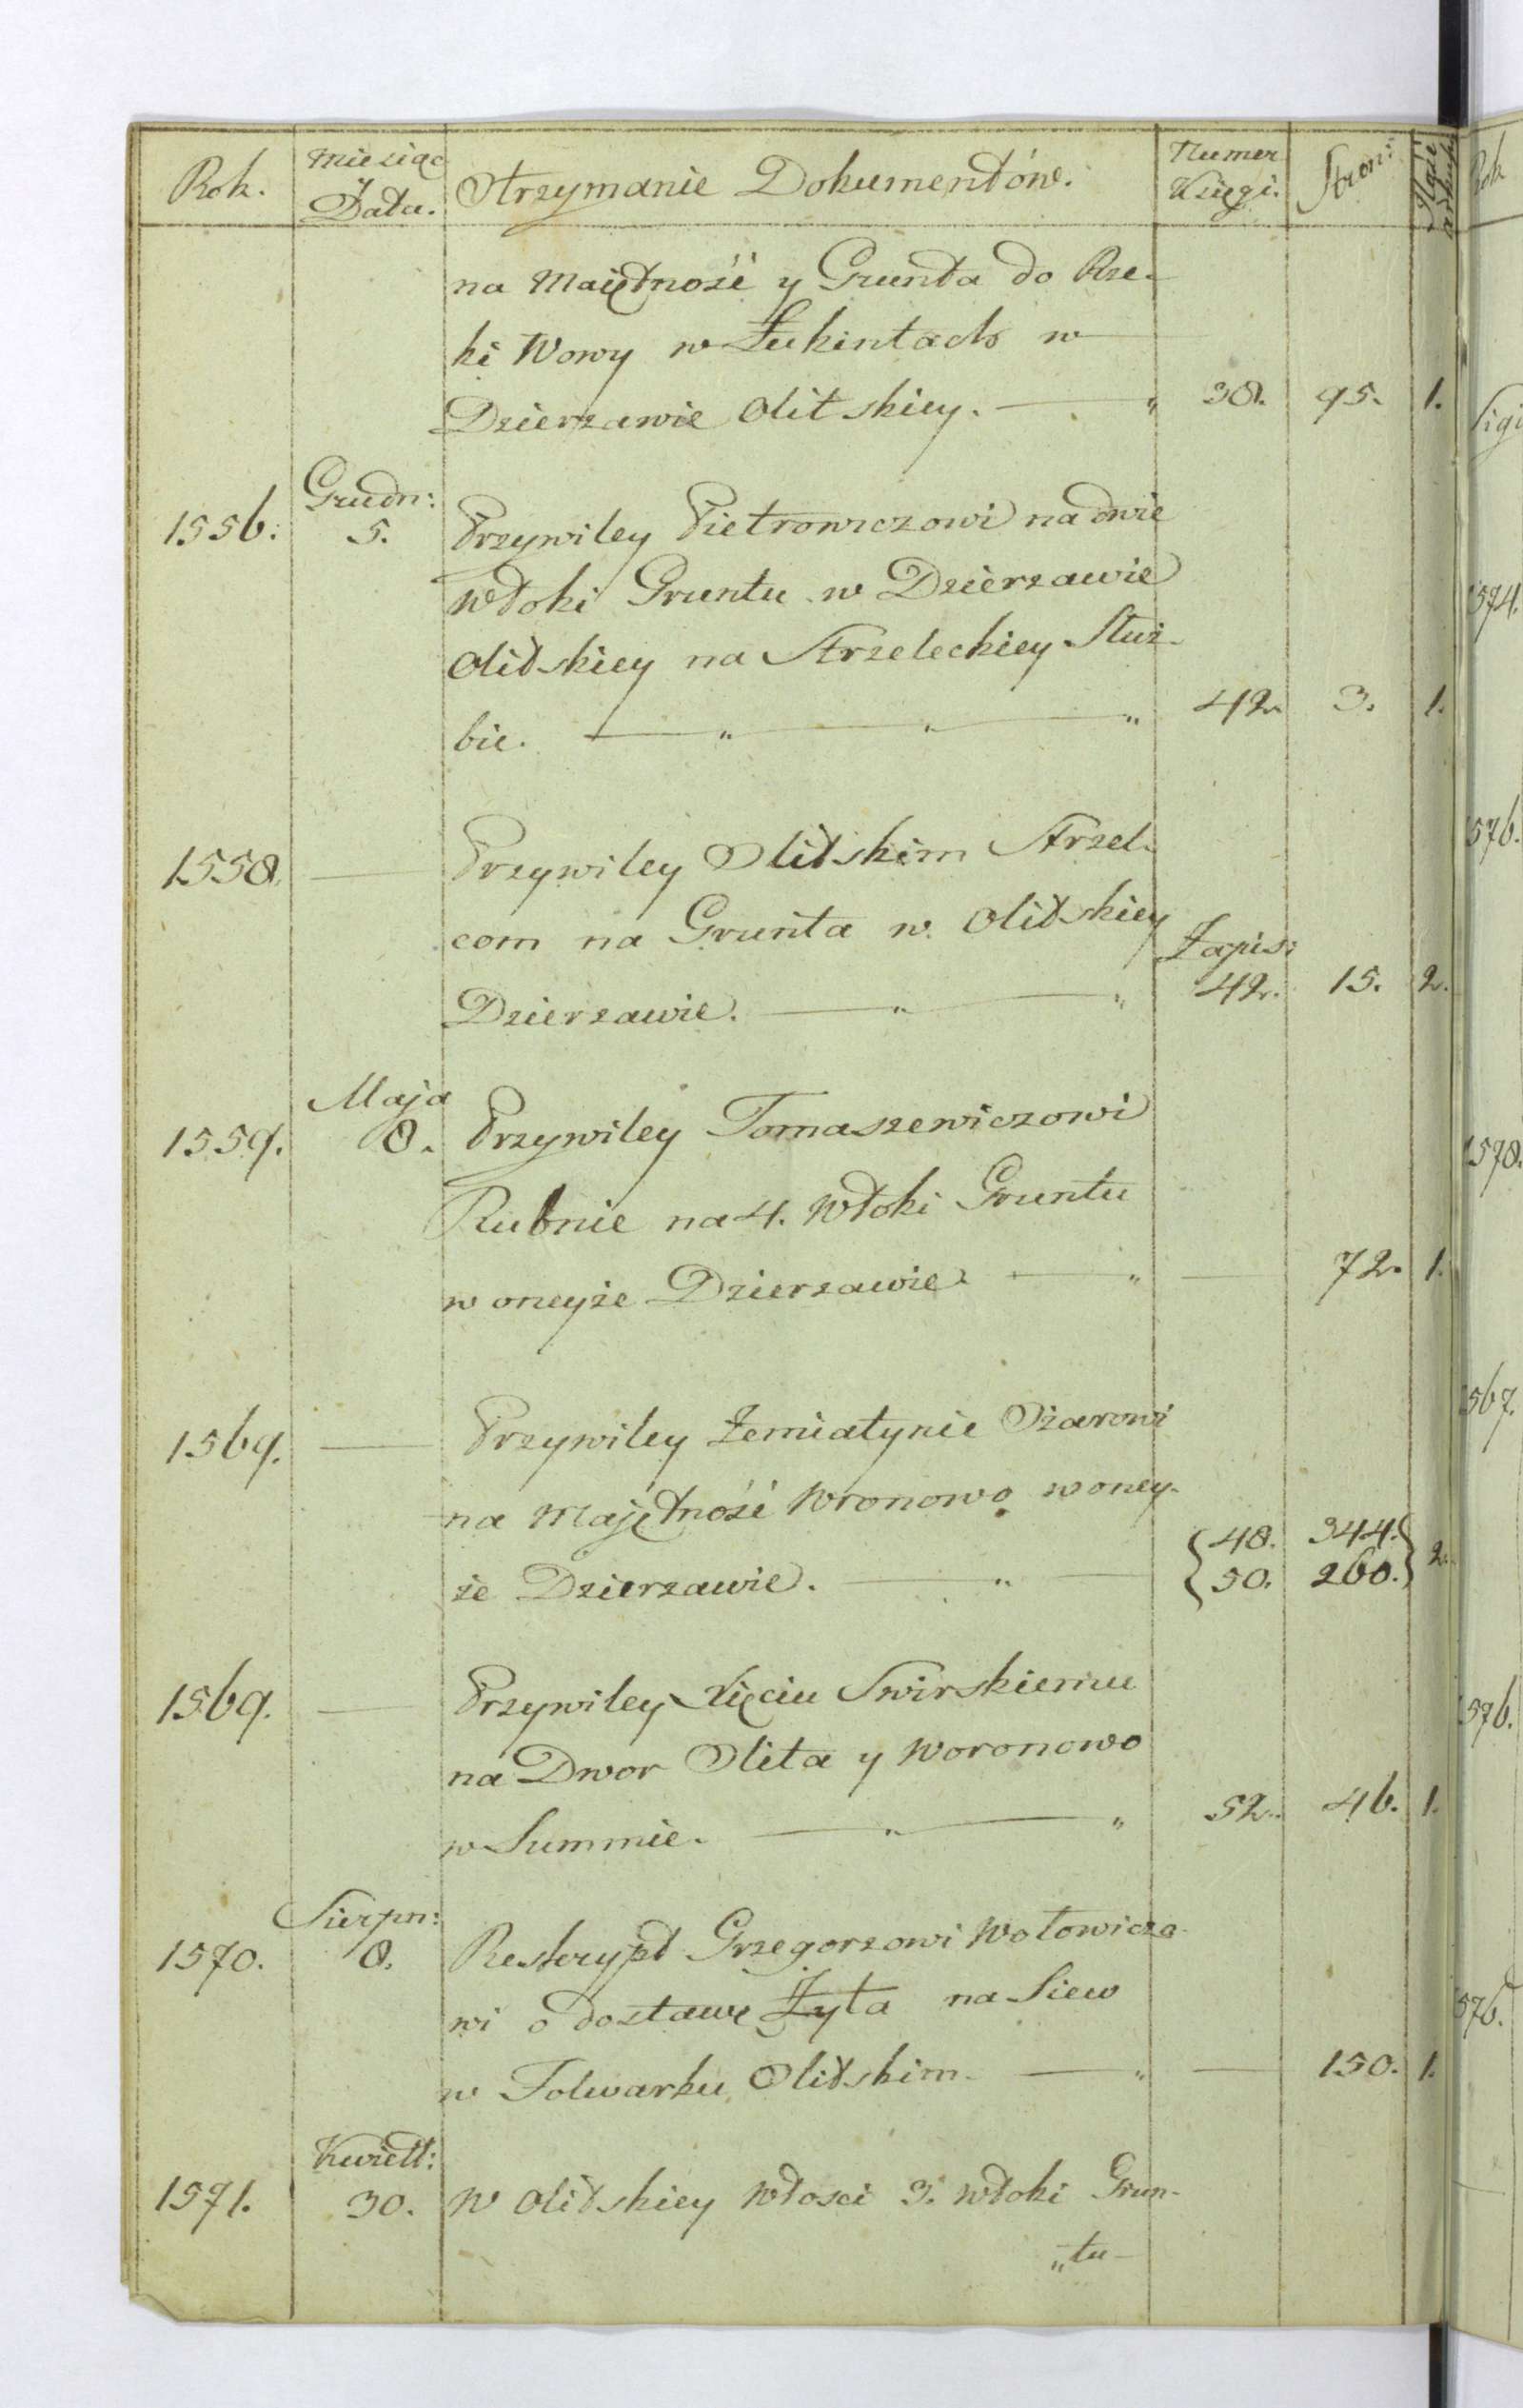 Rok. Miesiąc y Data. Otrzymanie Dokumentów. Numer Księgi. Stron: Ilość arkuszy
na Maiętność y Grunta do Rze-
ki Wowy w Łukintach w
Dzierzawie Olitskiey. — " 38. 95. 1.
1556. Grudn: 5. Przywiley Pietrowiczowi na dwie
Włoki Gruntu w Dzierzawie
Olitskiey na Strzeleckiey Służ-
bie. — " — " — " 42. 3. 1.
1558. — Przywiley Olitskim Strzel-
com na Grunta w Olitskiey
Dzierzawie. — " — " Zapis: 42. 15. 2.
1559. Maja 8. Przywiley Tomaszewiczowi
Rubnie na 4. Włoki Gruntu
w oneyże Dzierzawie. — " — 72. 1.
1569. — Przywiley Zemiatynie Ożarowi
na Majętność Wronowo w oney-
że Dzierzawie. — " — { 48. 344. } 2.
{ 50. 260. }
1569. — Przywiley Xięciu Swirskiemu
na Dwor Olita y Woronowo
w Summie. — " — " 52. 46. 1.
1570. Sierpn: 8. Reskrypt Grzegorzowi Wołowiczo-
wi o dostawę Żyta na Siew
w Folwarku Olitskim. — " — 150. 1.
1571. Kwiett: 30. W Olitskiey Włosci 3. Włoki Grun-
„tu—
Rok
Sigi
1574.
1576.
1578.
1567.
1576.
1576.